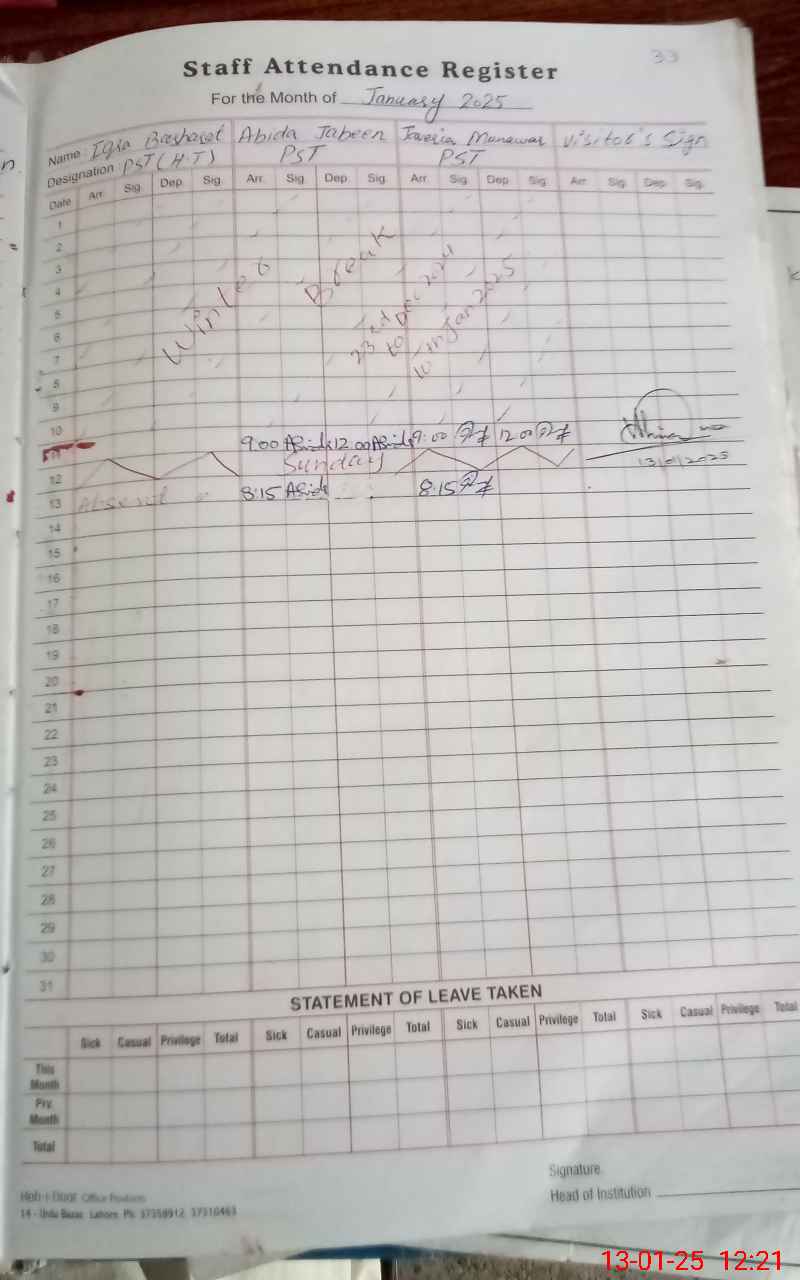 33
Staff Attendance Register
For the Month of January 2025
Name: Iqra Basharat Abida Jabeen Javeria Manawar Visitor's Sign
Designation: PST (H.T) PST PST
Date Arr. Sig. Dep. Sig. Arr. Sig. Dep. Sig. Arr. Sig. Dep. Sig. Arr. Sig. Dep. Sig.
1
2
3
4
5
6
7
8
9
10
Winter Break
23rd Dec 2024
to
10th Jan 2025
11 9:00 Abida 12:00 Abida 9:00 12:00
Sunday
13/01/2025
12
13 Absent 8:15 Abida 8:15
14
15
16
17
18
19
20
21
22
23
24
25
26
27
28
29
30
31
STATEMENT OF LEAVE TAKEN
Sick Casual Privilege Total Sick Casual Privilege Total Sick Casual Privilege Total Sick Casual Privilege Total
This Month
Prv. Month
Total
Signature
Head of Institution
Office Products
14 - Urdu Bazar Lahore. Ph: 37358912, 37310463
13-01-25 12:21